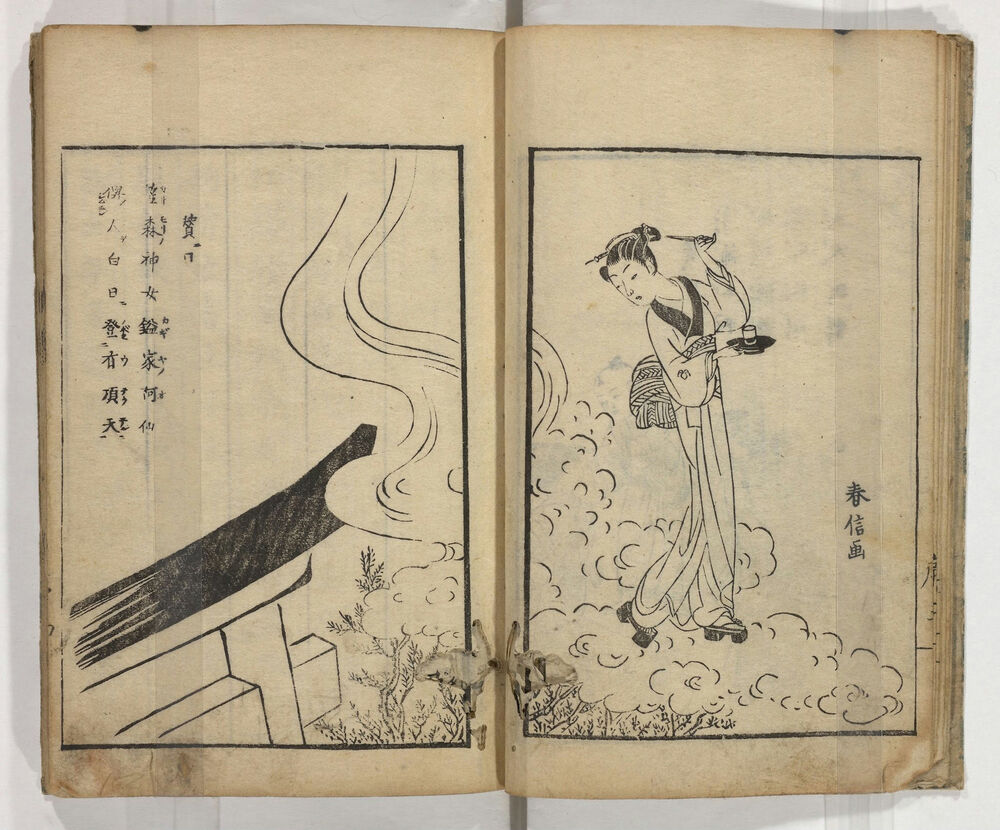 春信画
賛曰
笠森神女鎰家阿仙
俾人白日登有頂天